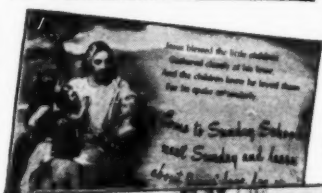 Jesus blessed the little children
Gathered closely at his knee
And the children knew he loved them
For he spoke so tenderly
Come to Sunday School
next Sunday and learn
about